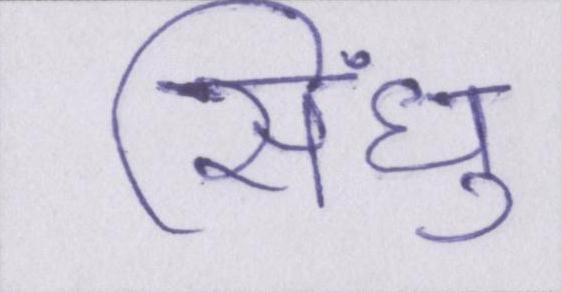 सिंधु